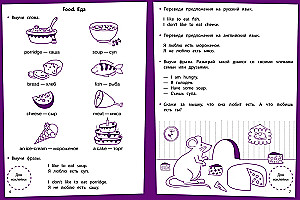 Food. Еда
• Выучи слова.
porridge — каша
soup — суп
bread — хлеб
fish — рыба
cheese — сыр
meat — мясо
an ice-cream — мороженое
a cake — торт
• Выучи фразы.
I like to eat soup.
Я люблю есть суп.
I don't like to eat porridge.
Я не люблю есть кашу.
Для наклейки
• Переведи предложения на русский язык.
I like to eat fish.
I don't like to eat cheese.
• Переведи предложения на английский язык.
Я люблю есть мороженое.
Я не люблю есть торт.
• Выучи фразы. Разыграй такой диалог со своими членами
семьи или друзьями.
— I am hungry.
Я голоден.
— Have some soup.
Съешь супа.
• Скажи за мышку, что она любит есть. А что любишь
есть ты?
Для наклейки